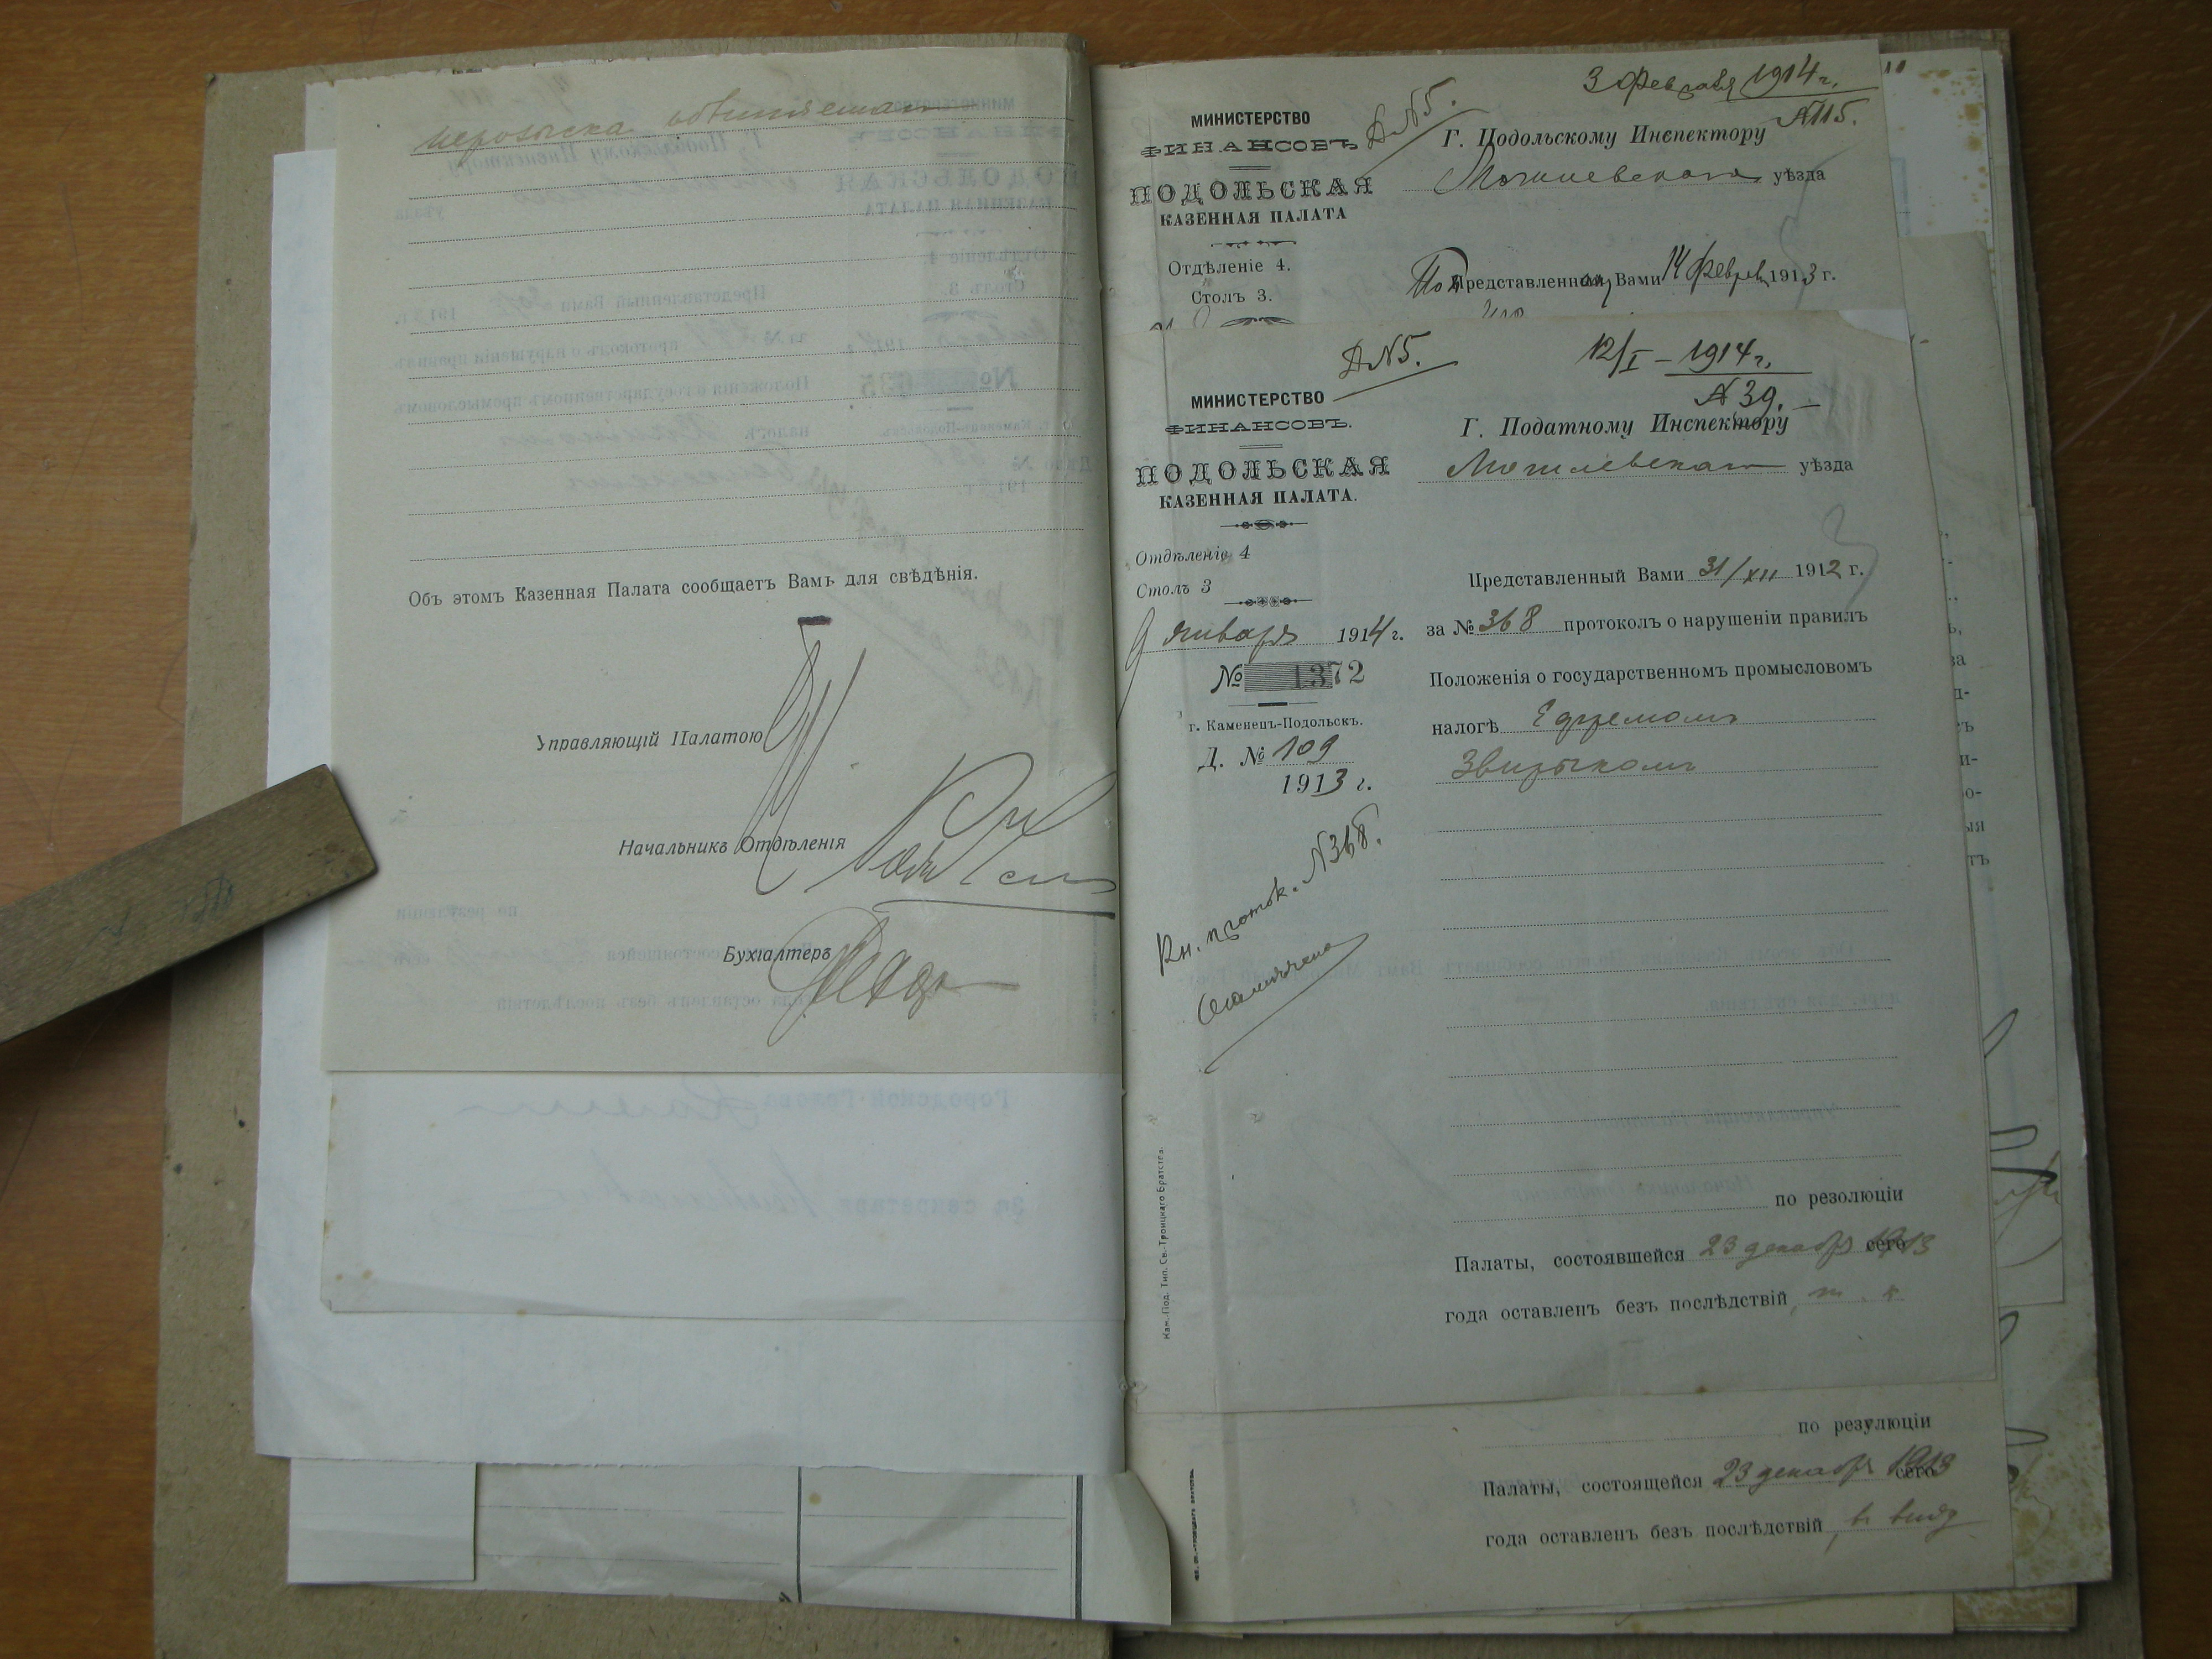 нерозыска обвиняемаго
Объ этомъ Казенная Палата сообщаетъ Вамъ для свѣдѣнія.
Управляющій Палатою
Начальникъ Отдѣленія
Бухгалтеръ
3 Февраля 1914 г.
№115.
Д№5.
МИНИСТЕРСТВО
ФИНАНСОВЪ
ПОДОЛЬСКАЯ
КАЗЕННАЯ ПАЛАТА
Отдѣленіе 4.
Столъ 3.
Г. Подольскому Инспектору
Могилевскаго уѣзда
Представленный Вами 14 февраля 1913 г.
Д№5.
12/I – 1914 г.
№ 39.
МИНИСТЕРСТВО
ФИНАНСОВЪ.
ПОДОЛЬСКАЯ
КАЗЕННАЯ ПАЛАТА.
Отдѣленіе 4
Столъ 3
9 января 1914 г.
№ 1372
г. Каменецъ-Подольскъ.
Д. № 109
1913 г.
Кн. проток. №368.
Отмѣчено
Г. Податному Инспектору
Могилевскаго уѣзда
Представленный Вами 31/XII 1912 г.
за № 368 протоколъ о нарушеніи правилъ
Положенія о государственномъ промысловомъ
налогѣ Ефремомъ
по резолюціи
Палаты, состоявшейся 23 декабря 1913 сего
года оставленъ безъ послѣдствій
Кам.-Под. Тип. Св.-Троицкаго Братства.
по резулюціи
Палаты, состоящейся 23 декабря 1913 сего
года оставленъ безъ послѣдствій, въ виду